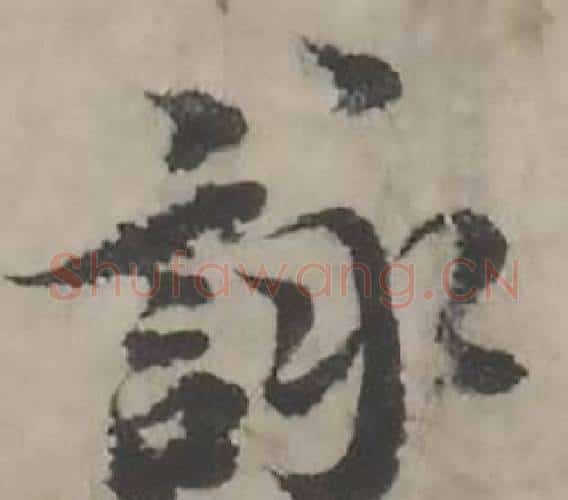 詠
Shufawang.CN